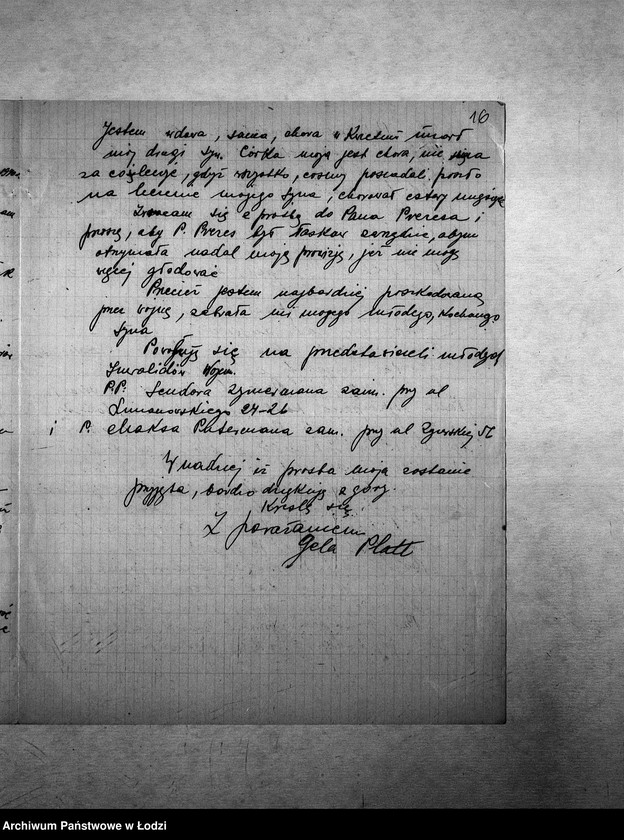 16
Jestem wdowa, sama, chora w Kwietniu umarł
mój drugi syn. Córka moja jest chora, nie
za co leczyć, gdyż wszystko, cośmy posiadali poszło
na leczenie mojego syna, chorował cztery
Zwracam się z prośbą do Pana Prezesa i
proszę, aby P. Prezes był łaskaw abym
otrzymała nadal moją prowizję, już nie mogę
więcej głodować
Przecież jestem najbardziej poszkodowaną
przez wojnę, zabrała mi mojego młodego, kochanego
syna
Powołuję się na przedstawicieli młodzych
Inwalidów Wojen.
P.P. Sendora Zymermana zam. przy ul
Limanowskiego 24-26
i P. Maksa Putermana zam. przy ul Zgierskiej
W nadziei iż prośba moja zostanie
przyjęta, bardzo dziękuję z góry.
Kreślę się
Z poważaniem
Gela Platt
Archiwum Państwowe w Łodzi